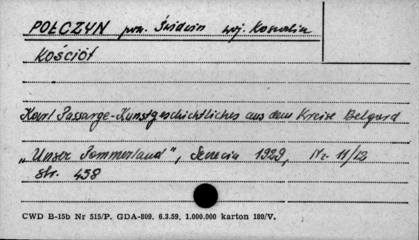 POŁCZYN pow. Świdwin woj. Koszalin
Kościół
Karl Passarge-Kunstgeschichtliches aus dem Kreise Belgard
„Unser Pommerland”, 1929, Nr. 11/12
str. 458
CWD B-15b Nr 515/P. GDA-809. 6.3.59. 1.000.000 karton 180/V.